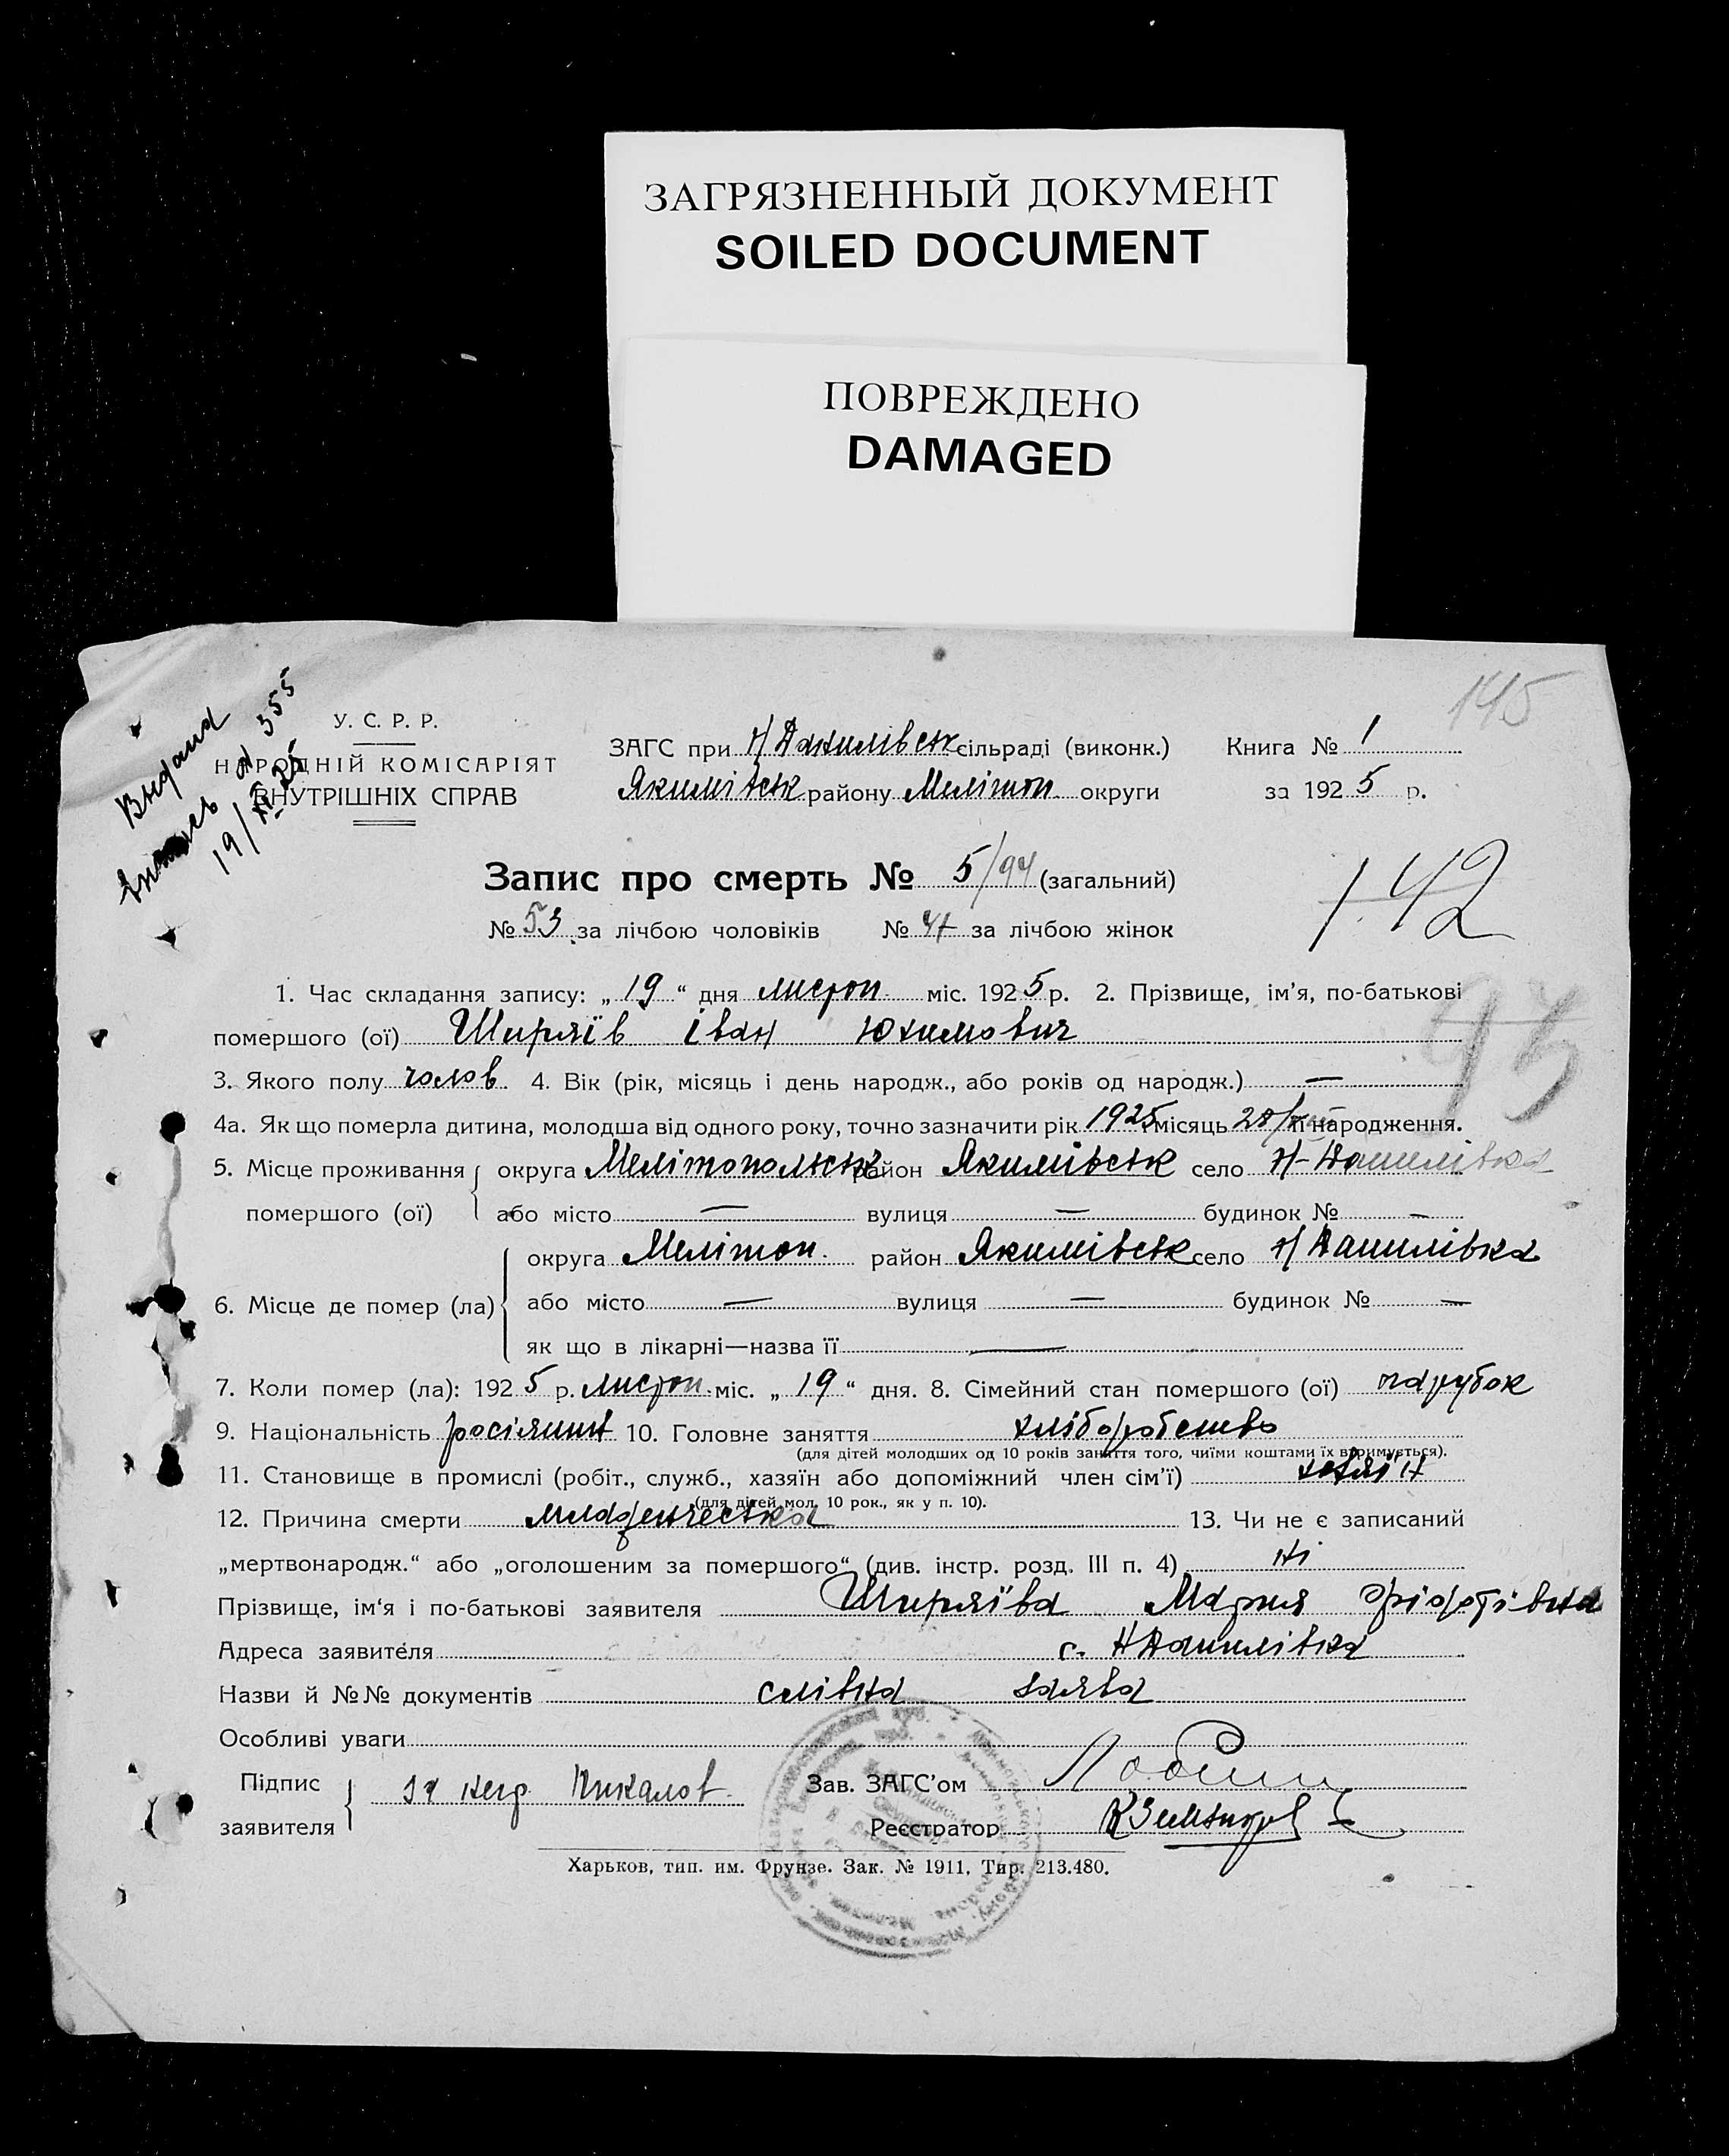 ЗАГРЯЗНЕННЫЙ ДОКУМЕНТ
SOILED DOCUMENT
ПОВРЕЖДЕНО
DAMAGED
145
Видана
355
19/XI 25
У. С. Р. Р.
НАРОДНІЙ КОМІСАРІЯТ
ВНУТРІШНІХ СПРАВ
ЗАГС при Н Данилівськ сільраді (виконк.) Книга № 1
Якимівськ району Мелітоп. округи за 1925 р.
Запис про смерть № 5/94 (загальний)
142
№ 53 за лічбою чоловіків № 41 за лічбою жінок
1. Час складання запису: „19“ дня листоп. міс. 1925 р. 2. Прізвище, ім’я, по-батькові
помершого (ої) Ширяїв Іван Юхимович
3. Якого полу чолов. 4. Вік (рік, місяць і день народж., або років од народж.) —
4а. Як що померла дитина, молодша від одного року, точно зазначити рік 1925 місяць 28/ її народження.
5. Місце проживання округа Мелітопольськ район Якимівськ село Н-Данилівка
помершого (ої) або місто — вулиця — будинок № —
округа Мелітоп. район Якимівськ село Н Данилівка
6. Місце де помер (ла) або місто — вулиця — будинок № —
як що в лікарні—назва її —
7. Коли помер (ла): 1925 р. листоп. міс. „19“ дня. 8. Сімейний стан помершого (ої) парубок
9. Національність росіянин 10. Головне заняття хліборобство
(для дітей молодших од 10 років заняття того, чиїми коштами їх втримується).
11. Становище в промислі (робіт., служб., хазяїн або допоміжний член сім’ї) хазяїн
(для дітей мол. 10 рок., як у п. 10).
12. Причина смерти младенческа 13. Чи не є записаний
„мертвонародж.“ або „оголошеним за помершого“ (див. інстр. розд. III п. 4) ні
Прізвище, ім‘я і по-батькові заявителя Ширяїва Мария
Адреса заявителя с. Н Данилівка
Назви й №№ документів слівна заява
Особливі уваги
Підпис заявителя за негр. Пикалов
Зав. ЗАГС’ом
Реєстратор
Харьков, тип. им. Фрунзе. Зак. № 1911. Тир. 213.480.